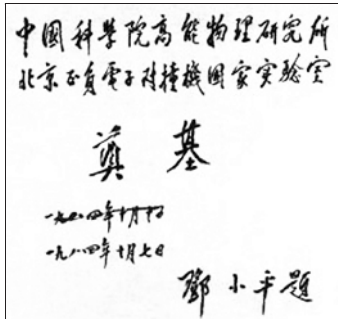 中國科學院高能物理研究所
北京正負電子对撞機國家实验室
奠基
一九八四年十月
一九八四年十月七日
鄧小平題